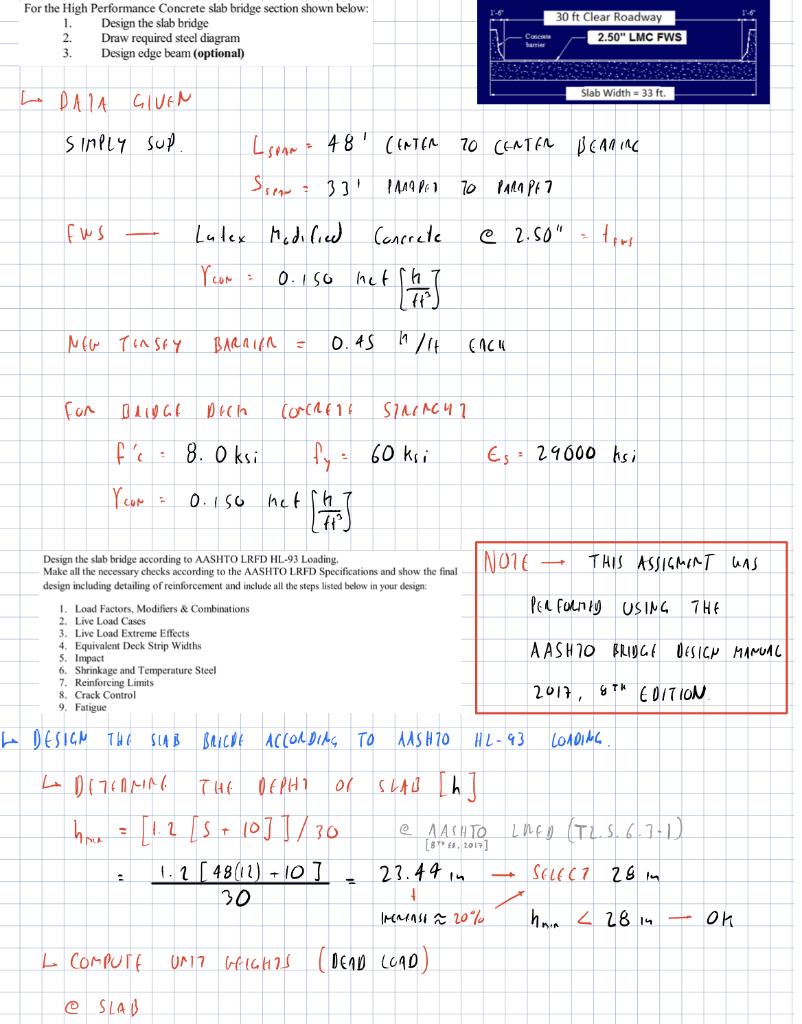 For the High Performance Concrete slab bridge section shown below:
1. Design the slab bridge
2. Draw required steel diagram
3. Design edge beam (optional)
1'-6"
30 ft Clear Roadway
1'-6"
Concrete barrier
2.50" LMC FWS
Slab Width = 33 ft.
↳ DATA GIVEN
SIMPLY SUP. L SPAN = 48' CENTER TO CENTER BEARING
S SPAN = 33' PARAPET TO PARAPET
FWS — Latex Modified Concrete @ 2.50" = tFWS
γCON = 0.150 kcf [k/ft³]
NEW JERSEY BARRIER = 0.45 k/ft EACH
FOR BRIDGE DECK CONCRETE STRENGHT
f'c = 8.0 ksi fy = 60 ksi Es = 29000 ksi
γCON = 0.150 kcf [k/ft³]
Design the slab bridge according to AASHTO LRFD HL-93 Loading.
Make all the necessary checks according to the AASHTO LRFD Specifications and show the final
design including detailing of reinforcement and include all the steps listed below in your design:
1. Load Factors, Modifiers & Combinations
2. Live Load Cases
3. Live Load Extreme Effects
4. Equivalent Deck Strip Widths
5. Impact
6. Shrinkage and Temperature Steel
7. Reinforcing Limits
8. Crack Control
9. Fatigue
NOTE → THIS ASSIGMENT WAS
PERFORMED USING THE
AASHTO BRIDGE DESIGN MANUAL
2017, 8TH EDITION.
↳ DESIGN THE SLAB BRIGDE ACCORDING TO AASHTO HL-93 LOADING.
↳ DETERMINE THE DEPHT OF SLAB [h]
hmin = [1.2 [S + 10]]/30 @ AASHTO LRFD (T2.5.6.3-1)
[8TH ED, 2017]
= 1.2 [48(12) + 10] / 30 = 23.44 in → SELECT 28 in
↓ INCREASE ≈ 20% hmin < 28 in → OK
↳ COMPUTE UNIT WEIGHTS (DEAD LOAD)
@ SLAB